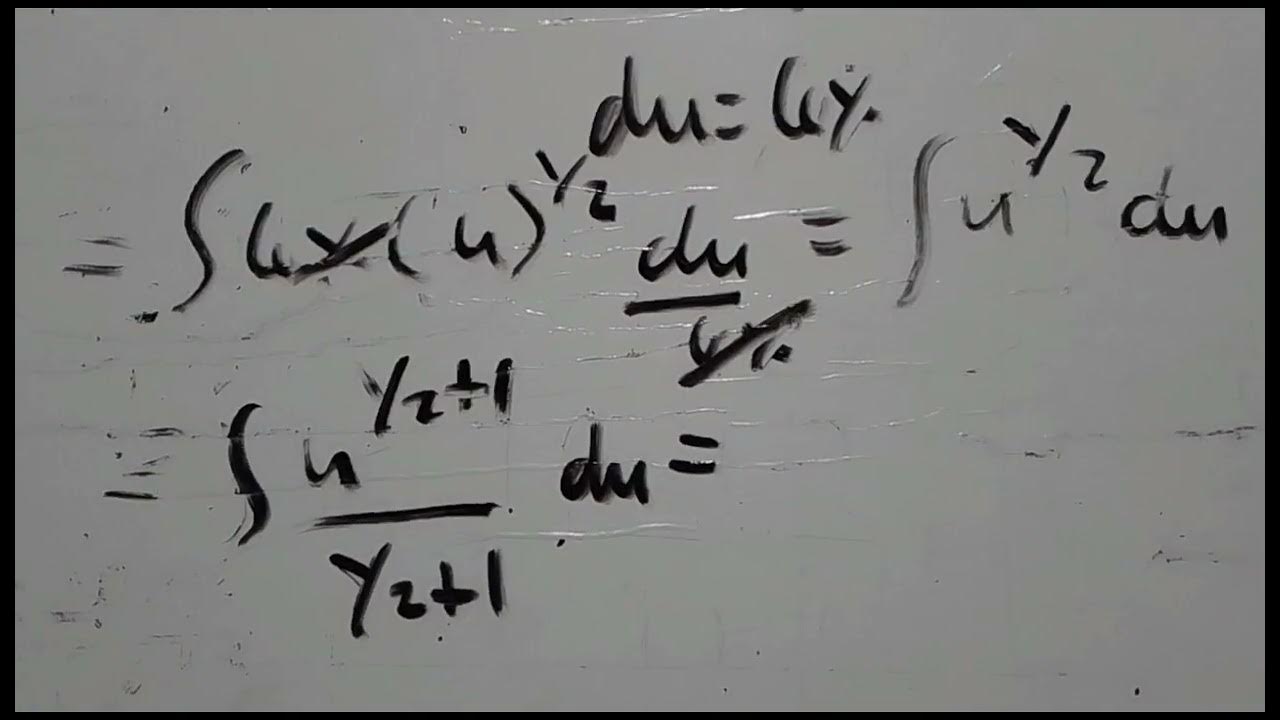 du = 6x
= ∫ 6x ( u )^1/2 du/6x = ∫ u^1/2 du
= ∫ u^1/2+1 / 1/2+1 du =